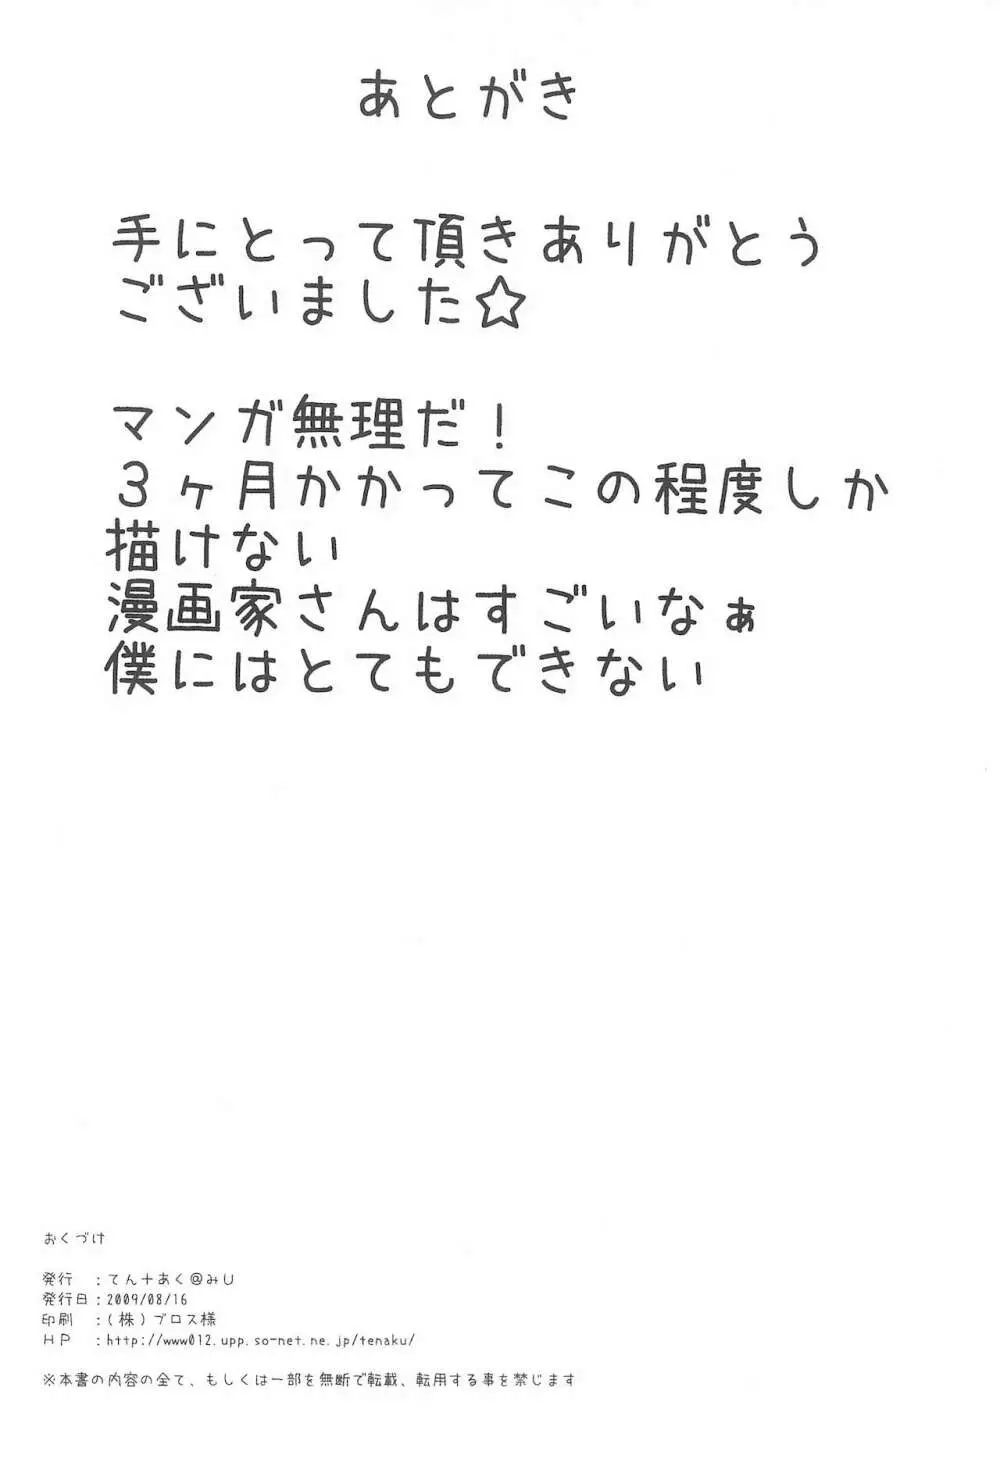 あとがき
手にとって頂きありがとう
ございました☆
マンガ無理だ!
3ヶ月かかってこの程度しか
描けない
漫画家さんはすごいなぁ
僕にはとてもできない
おくづけ
発行 :てん+あく@みU
発行日:2009/08/16
印刷 :(株)ブロス様
HP :http://www012.upp.so-net.ne.jp/tenaku/
※本書の内容の全て、もしくは一部を無断で転載、転用する事を禁じます